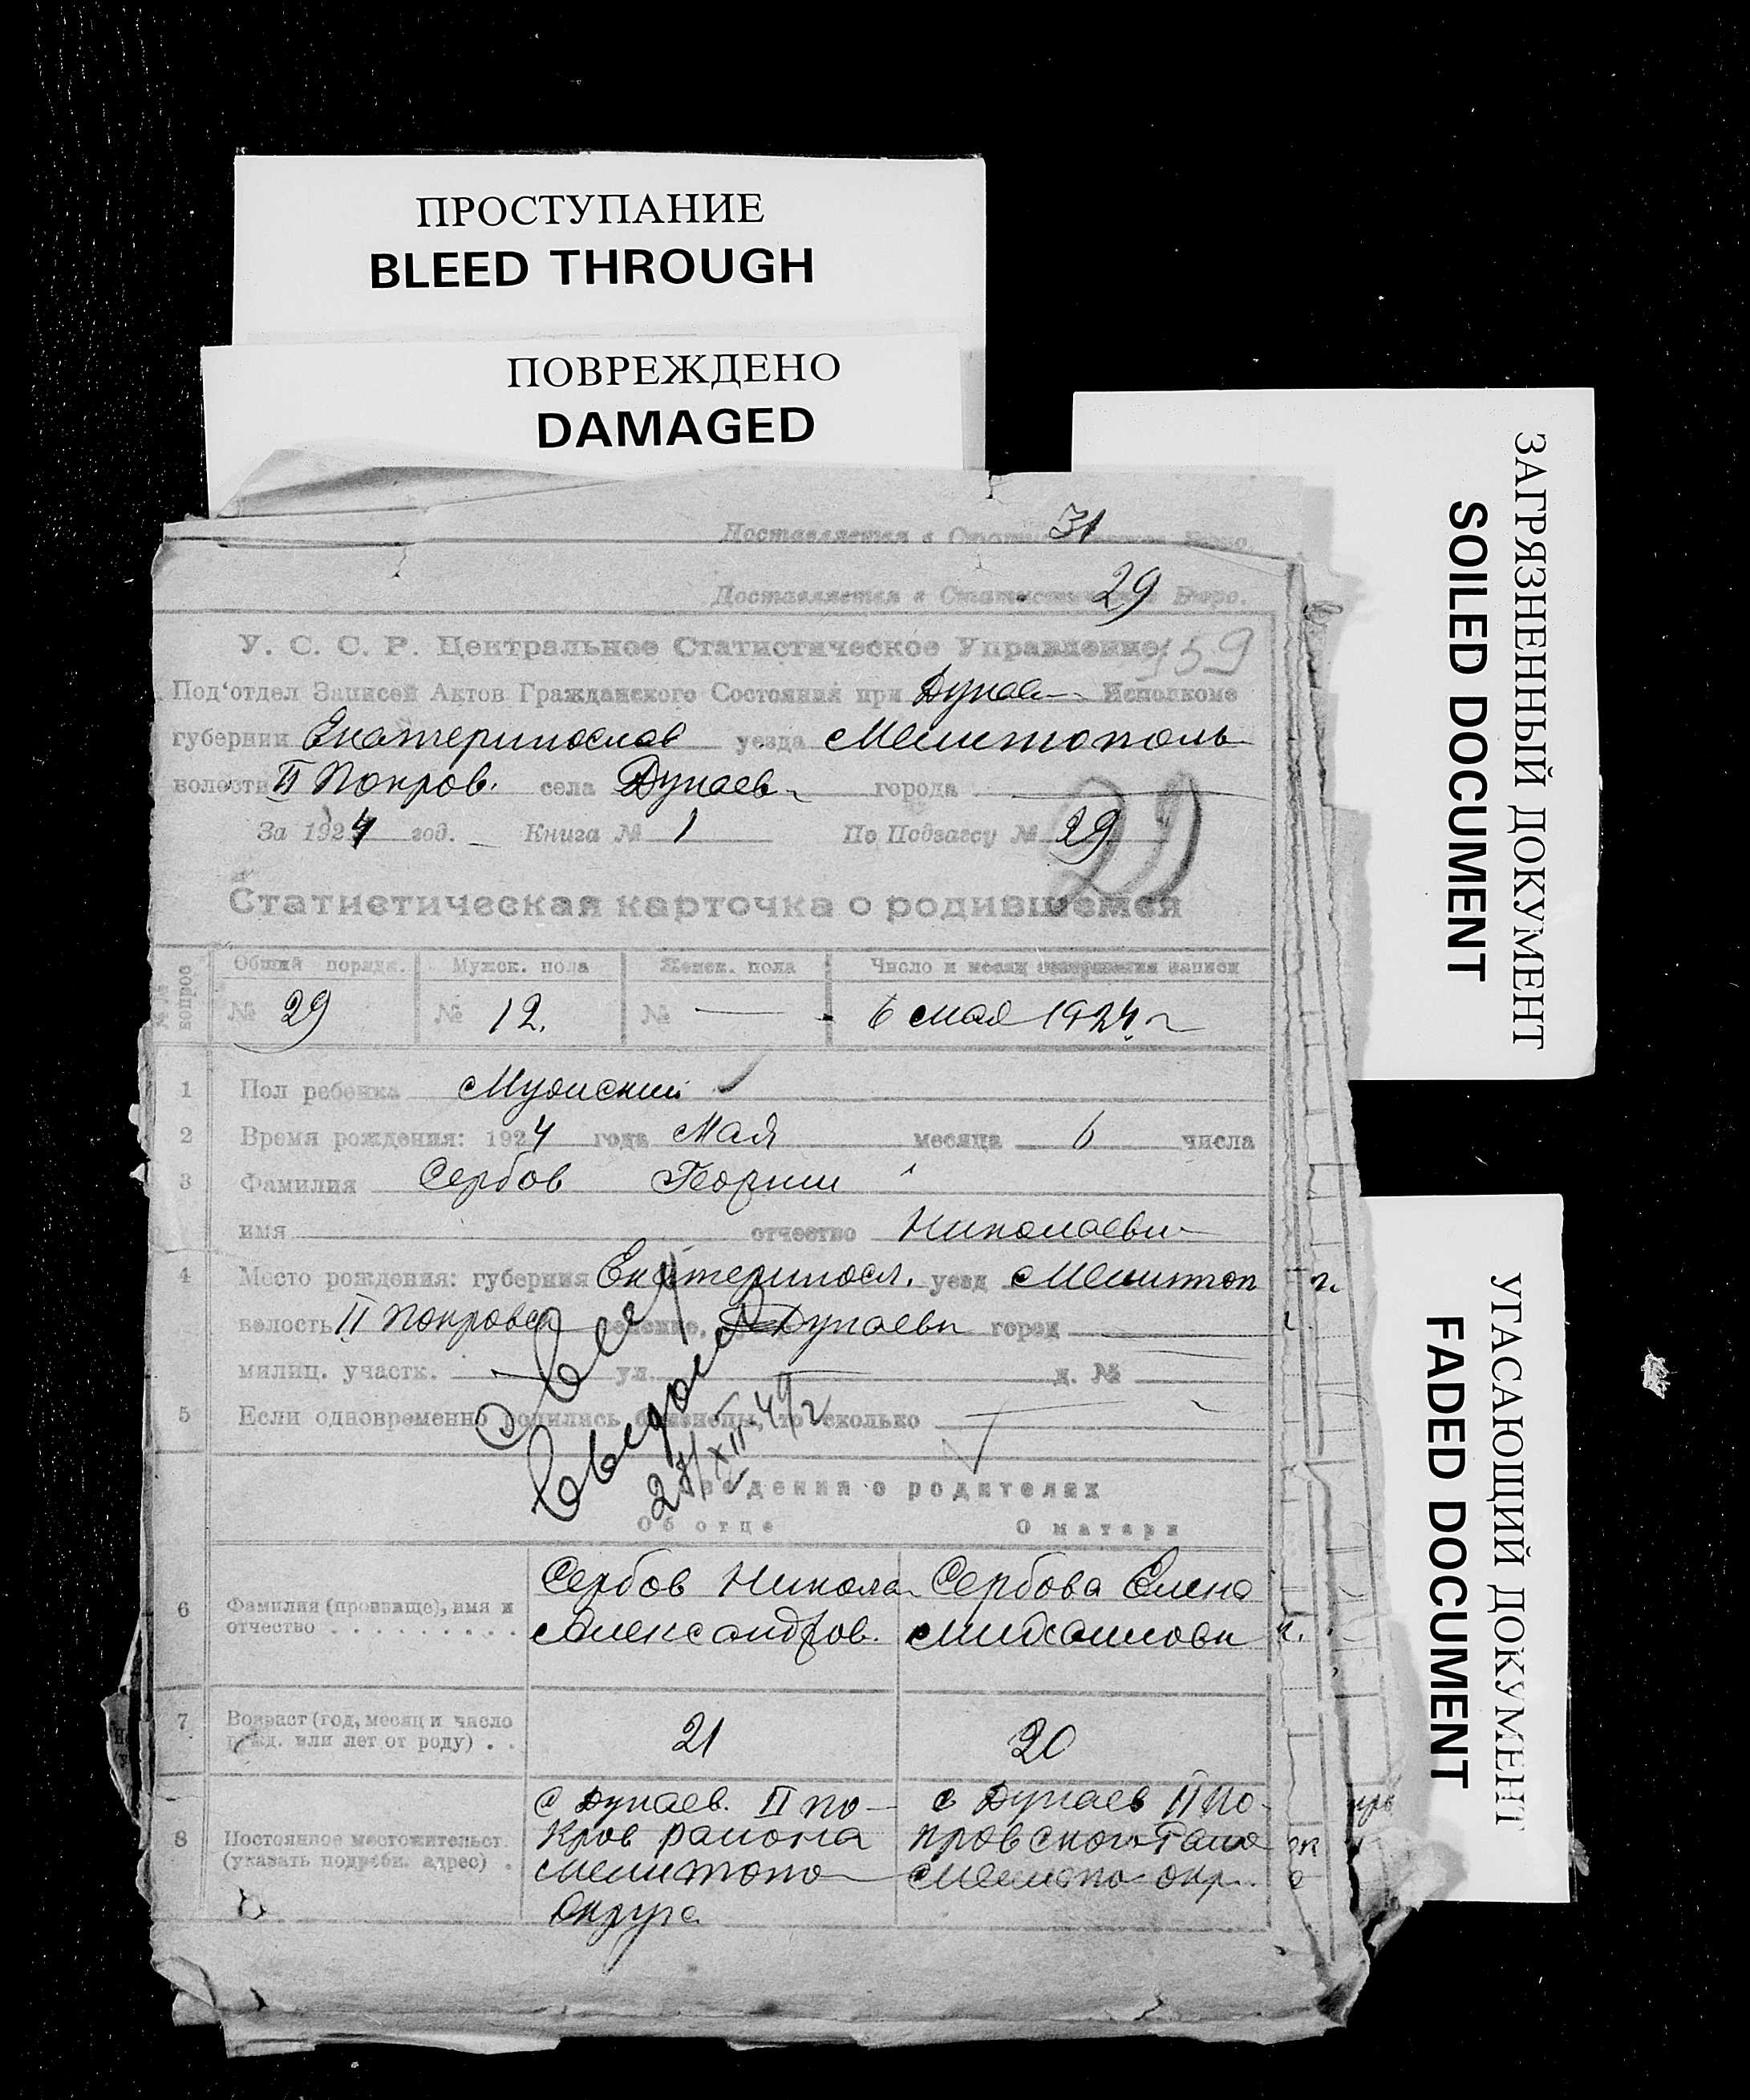 ПРОСТУПАНИЕ
BLEED THROUGH
ПОВРЕЖДЕНО
DAMAGED
ЗАГРЯЗНЕННЫЙ ДОКУМЕНТ
SOILED DOCUMENT
УГАСАЮЩИЙ ДОКУМЕНТ
FADED DOCUMENT
31
Доставляется в
29
Доставляется в Статистическое Бюро.
У. С. С. Р. Центральное Статистическое Управление 159
Под'отдел Записей Актов Гражданского Состояния при Дунае Исполкоме
губернии Екатеринослав уезда Мелитополь
волости II Покров. села Дунаев города
За 1924 год. Книга № 1 По Подзагсу № 29
29
Статистическая карточка о родившемся
№№ вопрос
Общий порядк. Мужск. пола Женск. пола Число и месяц совершения записи
№ 29 № 12. № — 6 мая 1924 г
1 Пол ребенка Мужский
2 Время рождения: 1924 года Мая месяца 6 числа
3 Фамилия Сербов Георгий
имя отчество Николаеви
4 Место рождения: губерния Екатериносл. уезд Мелитоп
волость II Покровск селение, Дунаевк город
милиц. участк. ул. д. №
5 Если одновременно родились близнецы, то сколько
Сведения о родителях
Об отце О матери
6 Фамилия (прозвище), имя и отчество Сербов Никола Александров. Сербова Елена Михаиловн
7 Возраст (год, месяц и число рожд. или лет от роду) 21 20
8 Постоянное местожительст. (указать подробн. адрес)
с Дунаев. II по-
кров района
Мелитопо
Округа
с Дунаев II По-
кровского Райо
Мелитопо окр.